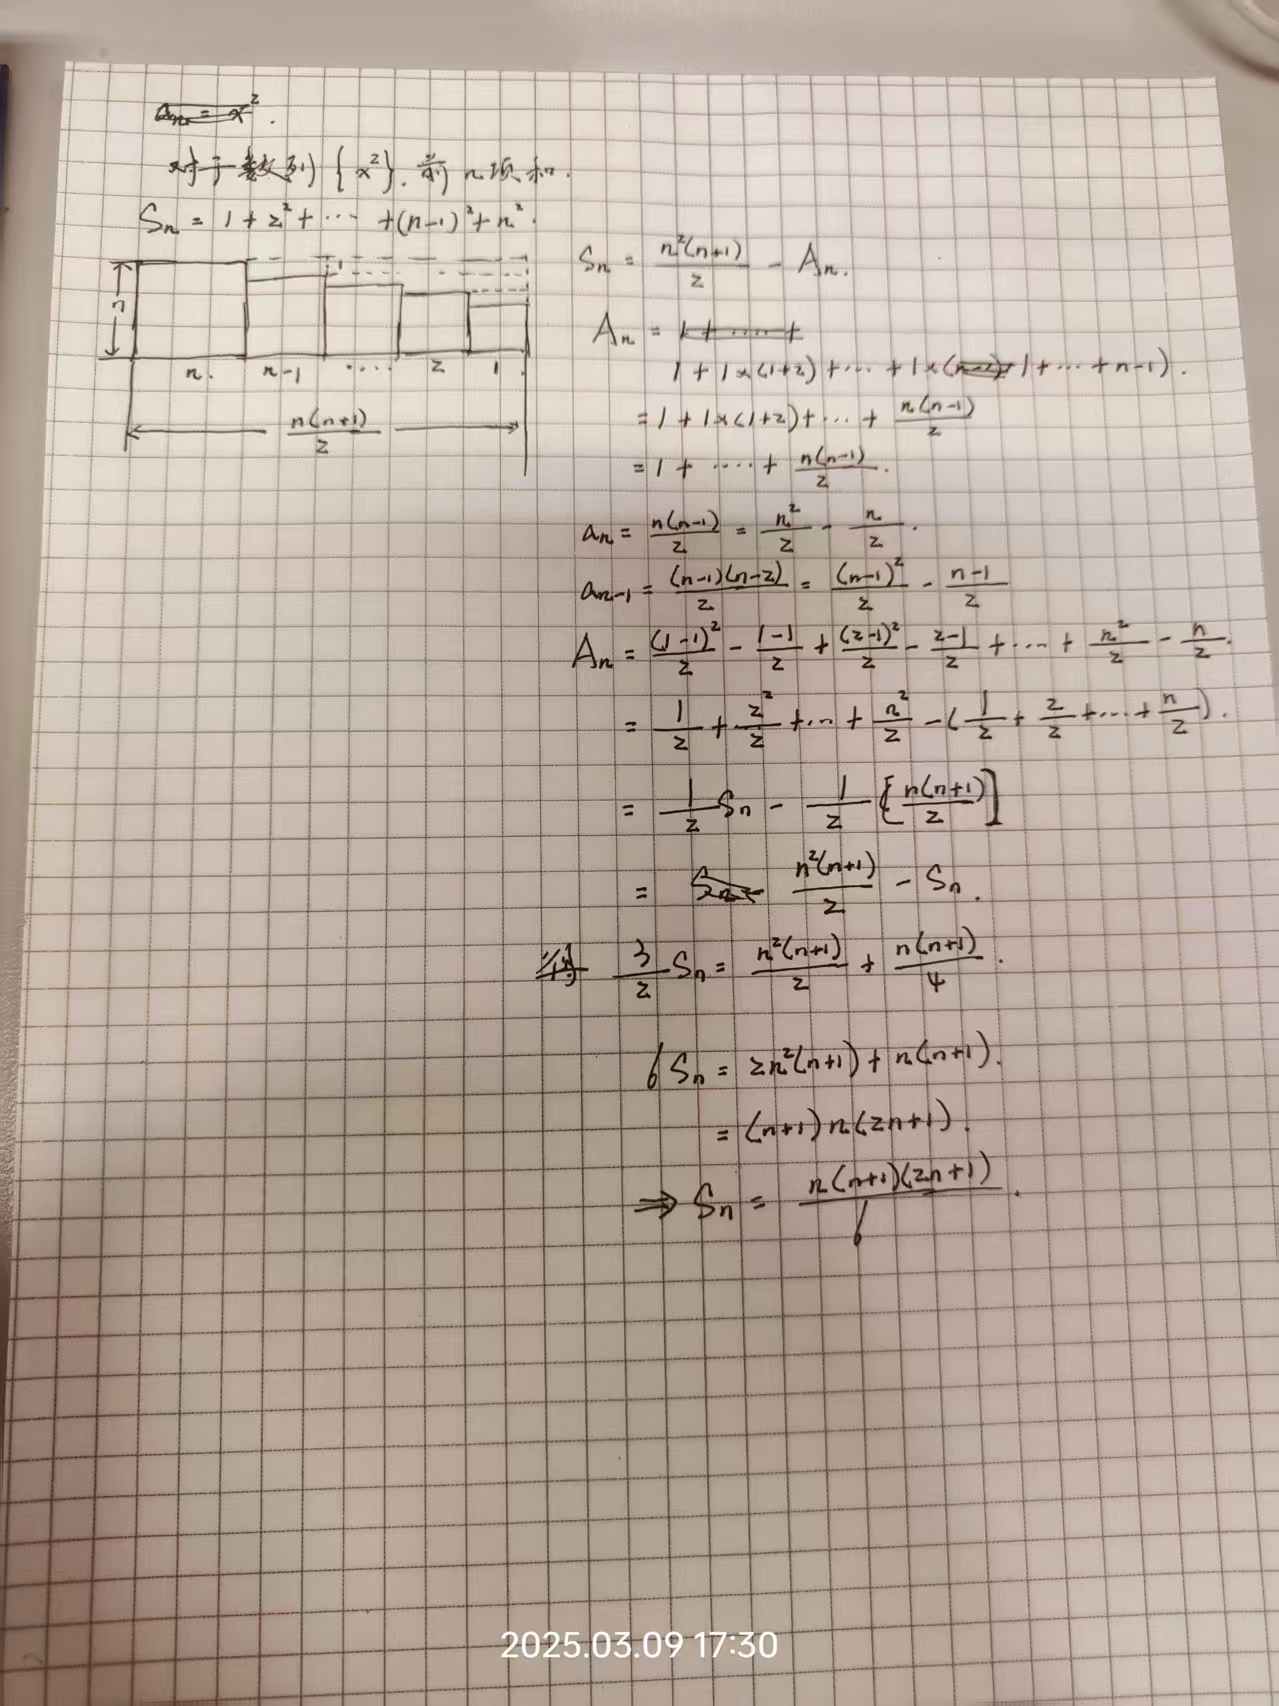 aₙ = x².
对于一数列{x²}.前n项和.
Sₙ = 1 + 2² + ··· + (n-1)² + n².
n
1
n. n-1 ···· 2 1
n(n+1)/2
Sₙ = n²(n+1)/2 - Aₙ.
Aₙ = 1 + ····· +
1 + 1×(1+2) + ··· + 1×( 1+ ··· + n-1).
= 1 + 1×(1+2) + ··· + n(n-1)/2
= 1 + ···· + n(n-1)/2.
aₙ = n(n-1)/2 = n²/2 - n/2.
aₙ₋₁ = (n-1)(n-2)/2 = (n-1)²/2 - (n-1)/2
Aₙ = (1-1)²/2 - (1-1)/2 + (2-1)²/2 - (2-1)/2 + ··· + n²/2 - n/2.
= 1/2 + 2²/2 + ··· + n²/2 - (1/2 + 2/2 + ··· + n/2).
= 1/2 Sₙ - 1/2 [n(n+1)/2]
= n²(n+1)/2 - Sₙ.
3/2 Sₙ = n²(n+1)/2 + n(n+1)/4.
6Sₙ = 2n²(n+1) + n(n+1).
= (n+1)n(2n+1).
⇒ Sₙ = n(n+1)(2n+1)/6.
2025.03.09 17:30